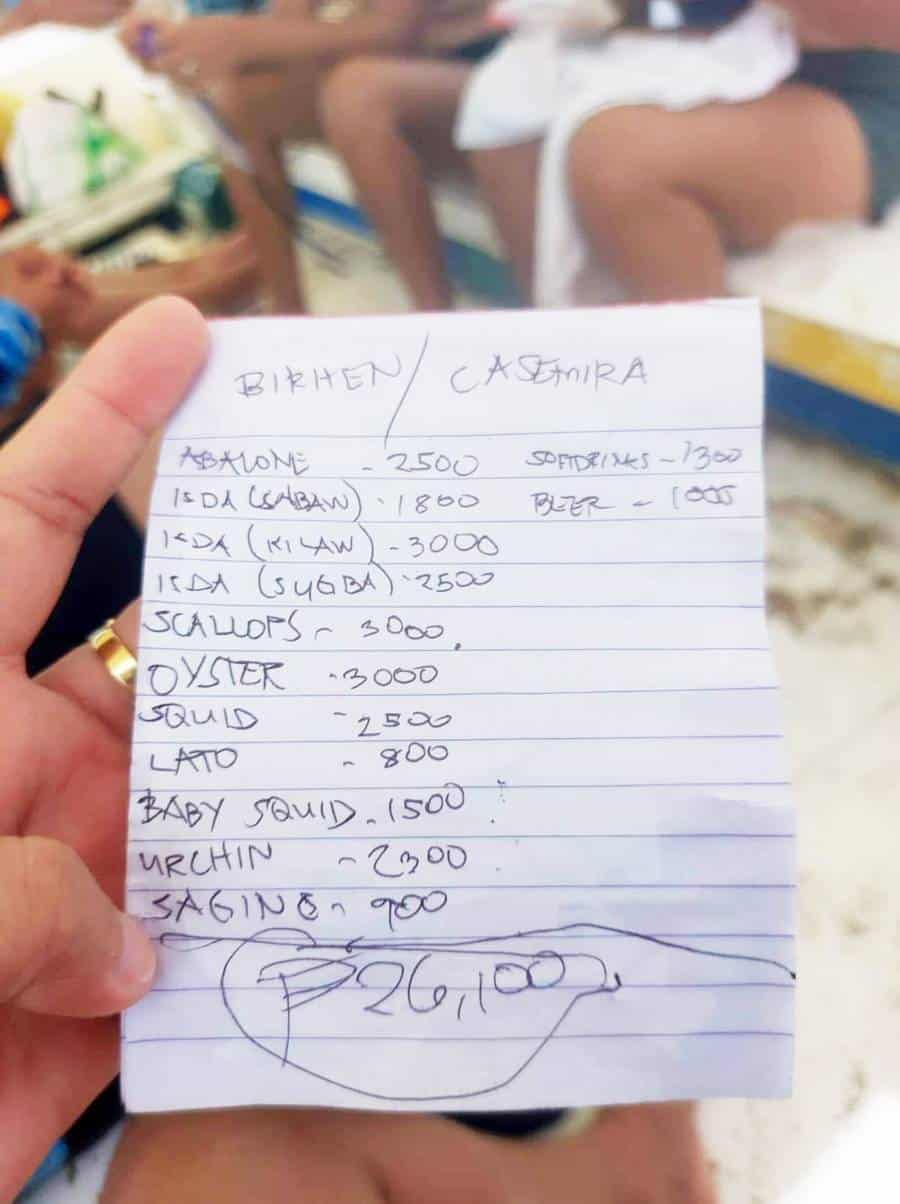 BIRHEN / CASEMIRA
ABALONE - 2500 SOFTDRINKS - 1300
ISDA (SABAW) - 1800 BEER - 1000
ISDA (KILAW) - 3000
ISDA (SUGBA) - 2500
SCALLOPS - 3000
OYSTER - 3000
SQUID - 2500
LATO - 800
BABY SQUID - 1500
URCHIN - 2300
SAGING - 900
₱26,100